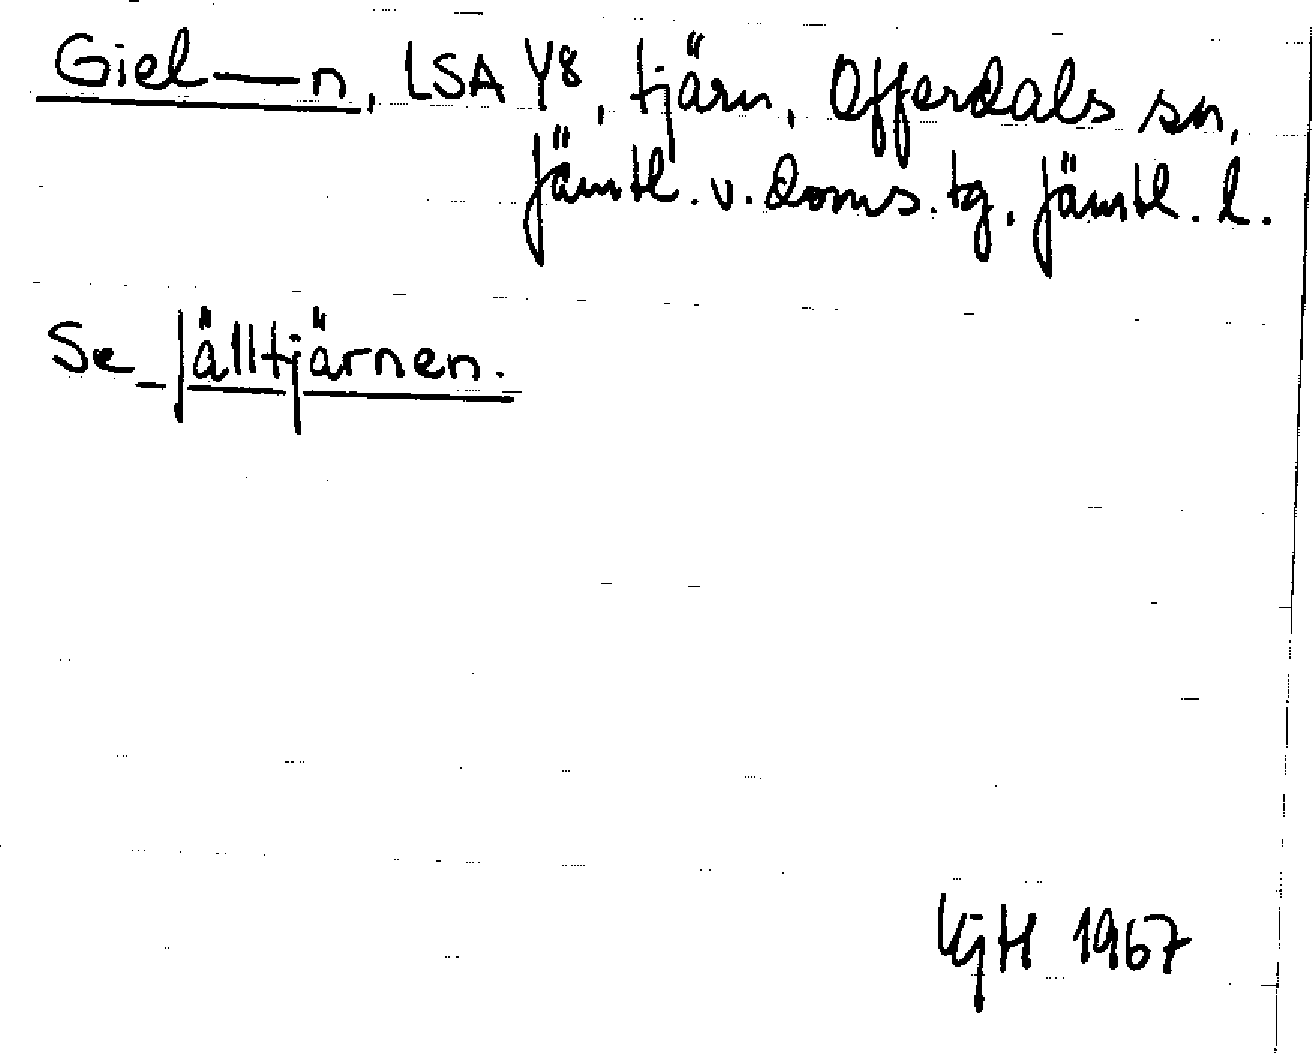 Giel—n, LSA Y8, tjärn, Offerdals sn,
Jämtl. v. doms. tg. Jämtl. l.
Se Jälltjärnen.
VjH 1967